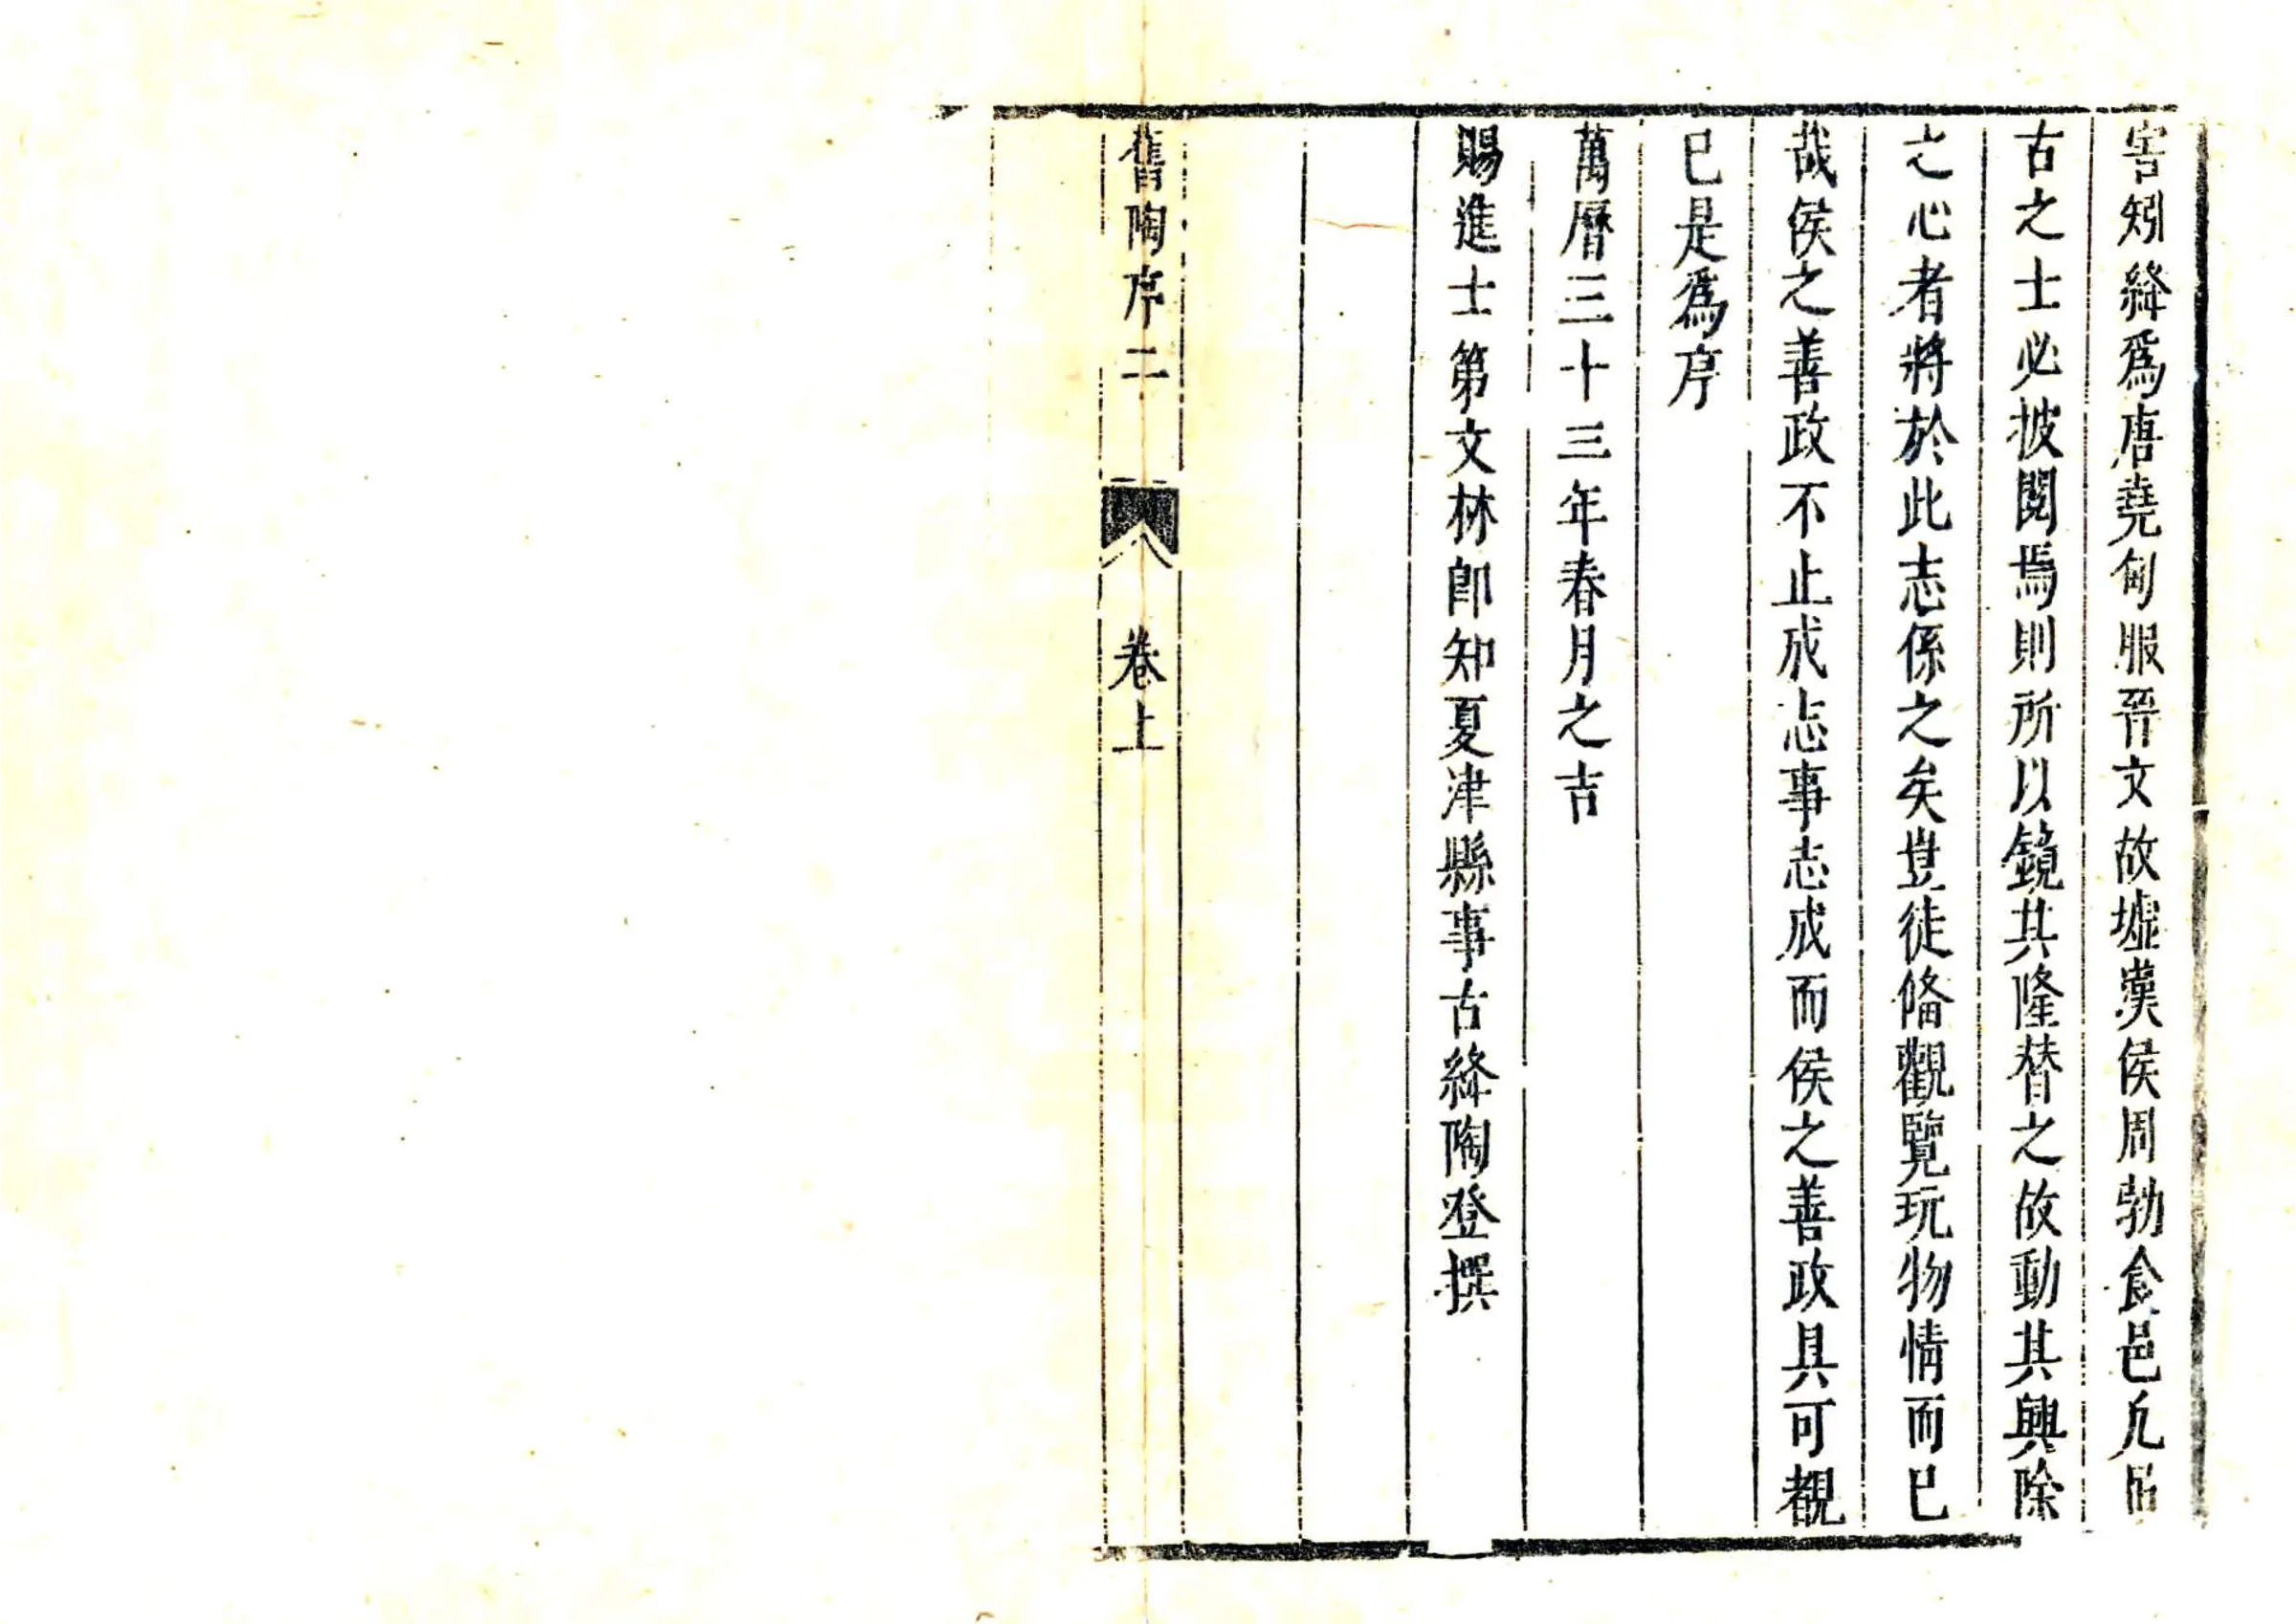 害矧絳爲唐堯甸服晉文故墟漢侯周勃食邑凡吊
古之士必披閱焉則所以鏡其隆替之故動其興除
之心者將於此志係之矣豈徒俻觀覽玩物情而已
哉侯之善政不止成志事志成而侯之善政具可覩
已是爲序
萬曆三十三年春月之吉
賜進士第文林郎知夏津縣事古絳陶登撰
舊陶序二 卷上